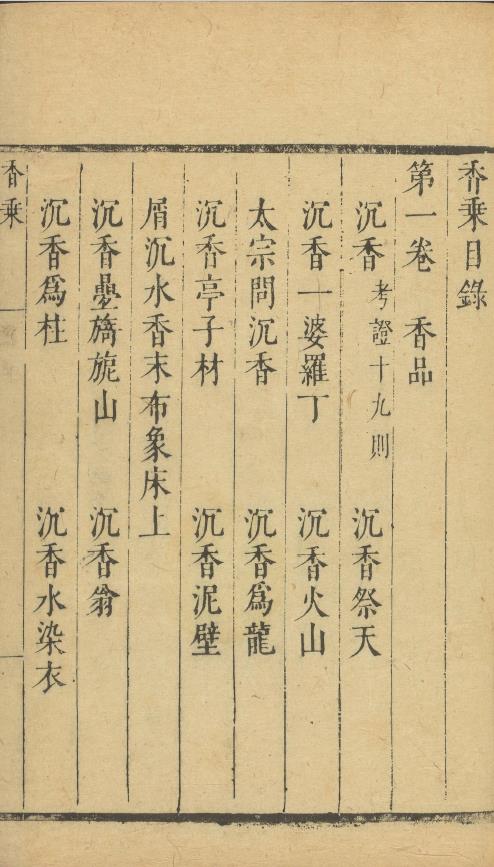 香乘目錄
第一卷 香品
沉香 考證十九則 沉香祭天
沉香一婆羅丁 沉香火山
太宗問沉香 沉香爲龍
沉香亭子材 沉香泥壁
屑沉水香末布象床上
沉香疊旖旎山 沉香翁
沉香爲柱 沉香水染衣
香乘